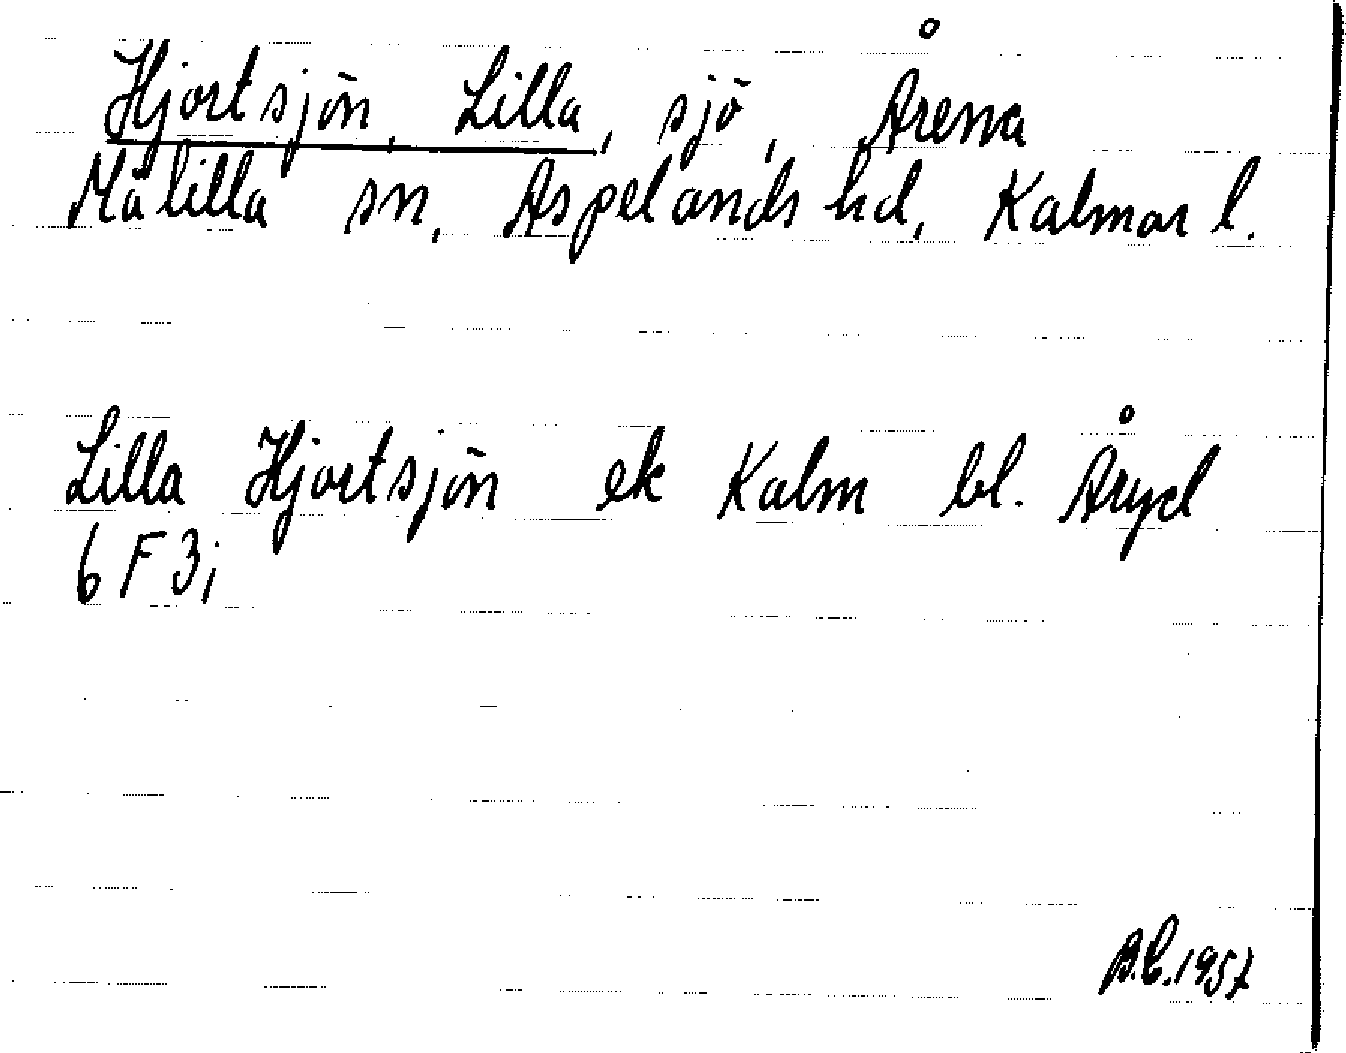 Hjortsjön, Lilla, sjö, Årena
Målilla sn, Aspelands hd, Kalmar l.
Lilla Hjortsjön ek Kalm bl. Åryd
6 F 3 i
B.E. 1957